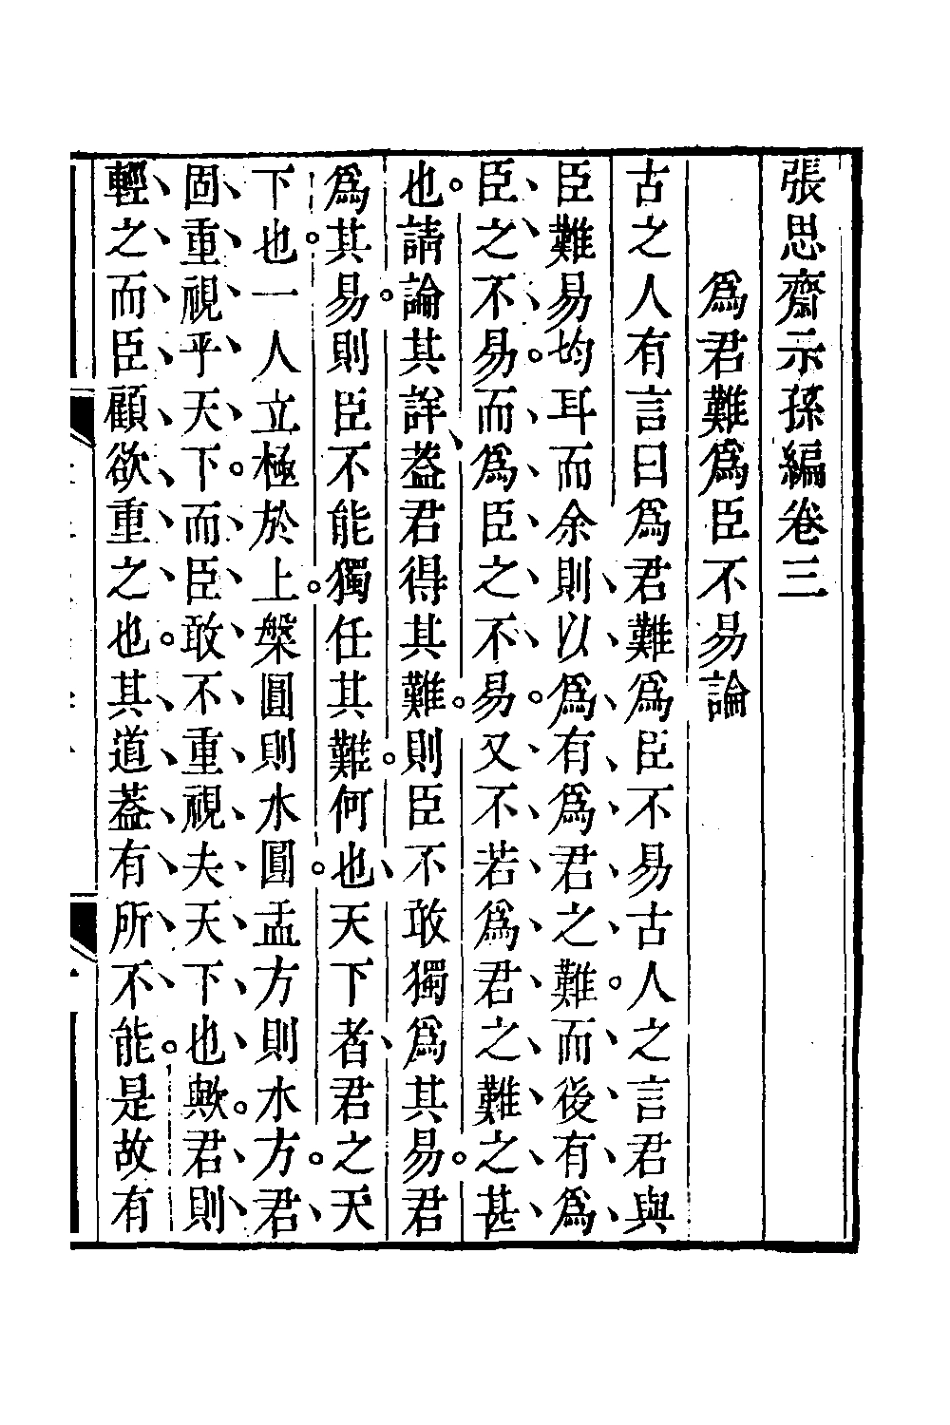 張思齋示孫編卷三
爲君難爲臣不易論
古之人有言曰爲君難爲臣不易古人之言君與
臣難易均耳而余則以爲有爲君之難而後有爲
臣之不易而爲臣之不易又不若爲君之難之甚
也請論其詳葢君得其難則臣不敢獨爲其易君
爲其易則臣不能獨任其難何也天下者君之天
下也一人立極於上槃圓則水圓盂方則水方君
固重視乎天下而臣敢不重視夫天下也歟君則
輕之而臣顧欲重之也其道葢有所不能是故有